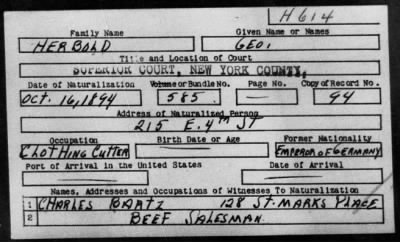 H614
Family Name Given Name or Names
HERBOLD GEO.
Title and Location of Court
SUPERIOR COURT, NEW YORK COUNTY.
Date of Naturalization Volume or Bundle No. Page No. Copy of Record No.
OCT. 16, 1894 585 — 94
Address of Naturalized Person
215 E. 4TH ST
Occupation Birth Date or Age Former Nationality
CLOTHING CUTTER EMPEROR OF GERMANY
Port of Arrival in the United States Date of Arrival
Names, Addresses and Occupations of Witnesses To Naturalization
1 CHARLES BARTZ 128 ST. MARKS PLACE
2 BEEF SALESMAN